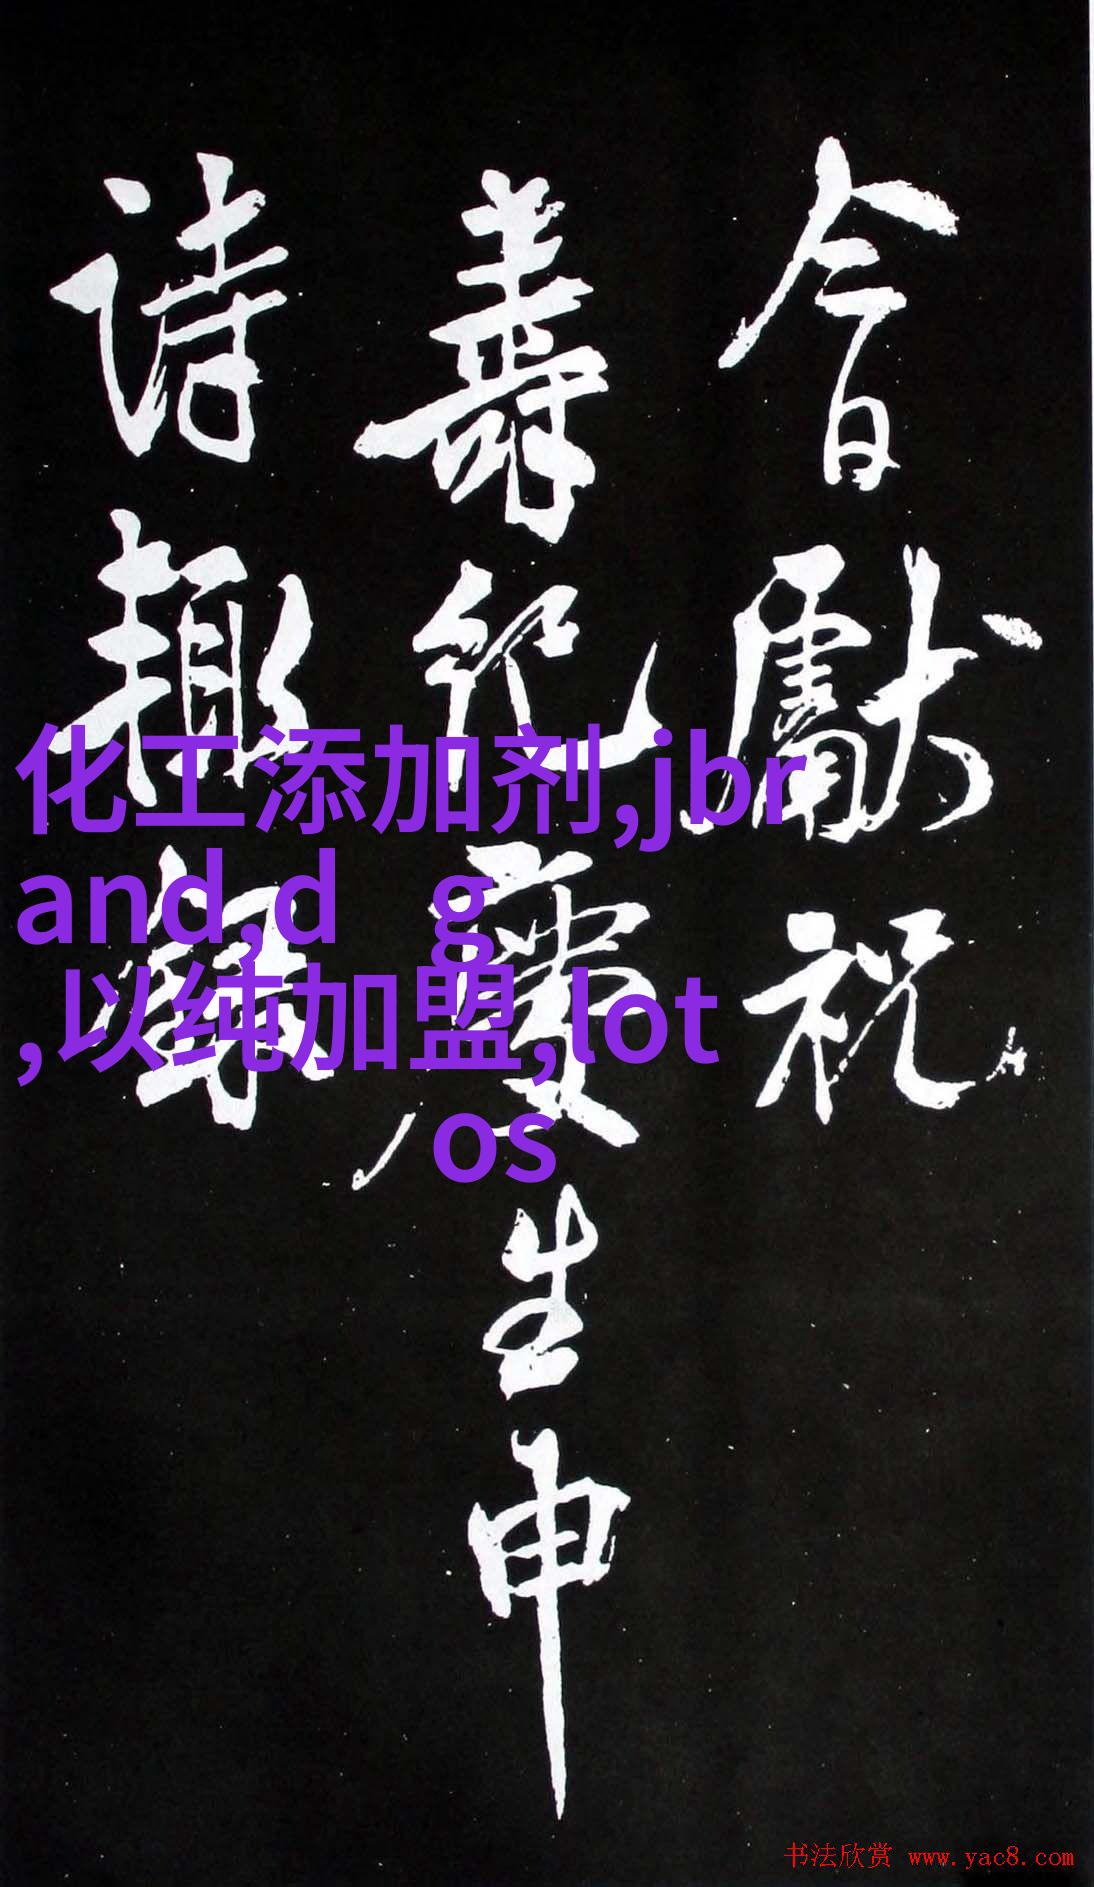 今日獻祝
壽紀慶生申
诗趣
化工添加剂,jbr
and,d g
,以纯加盟,lot
os
书法欣赏 www.yac8.com